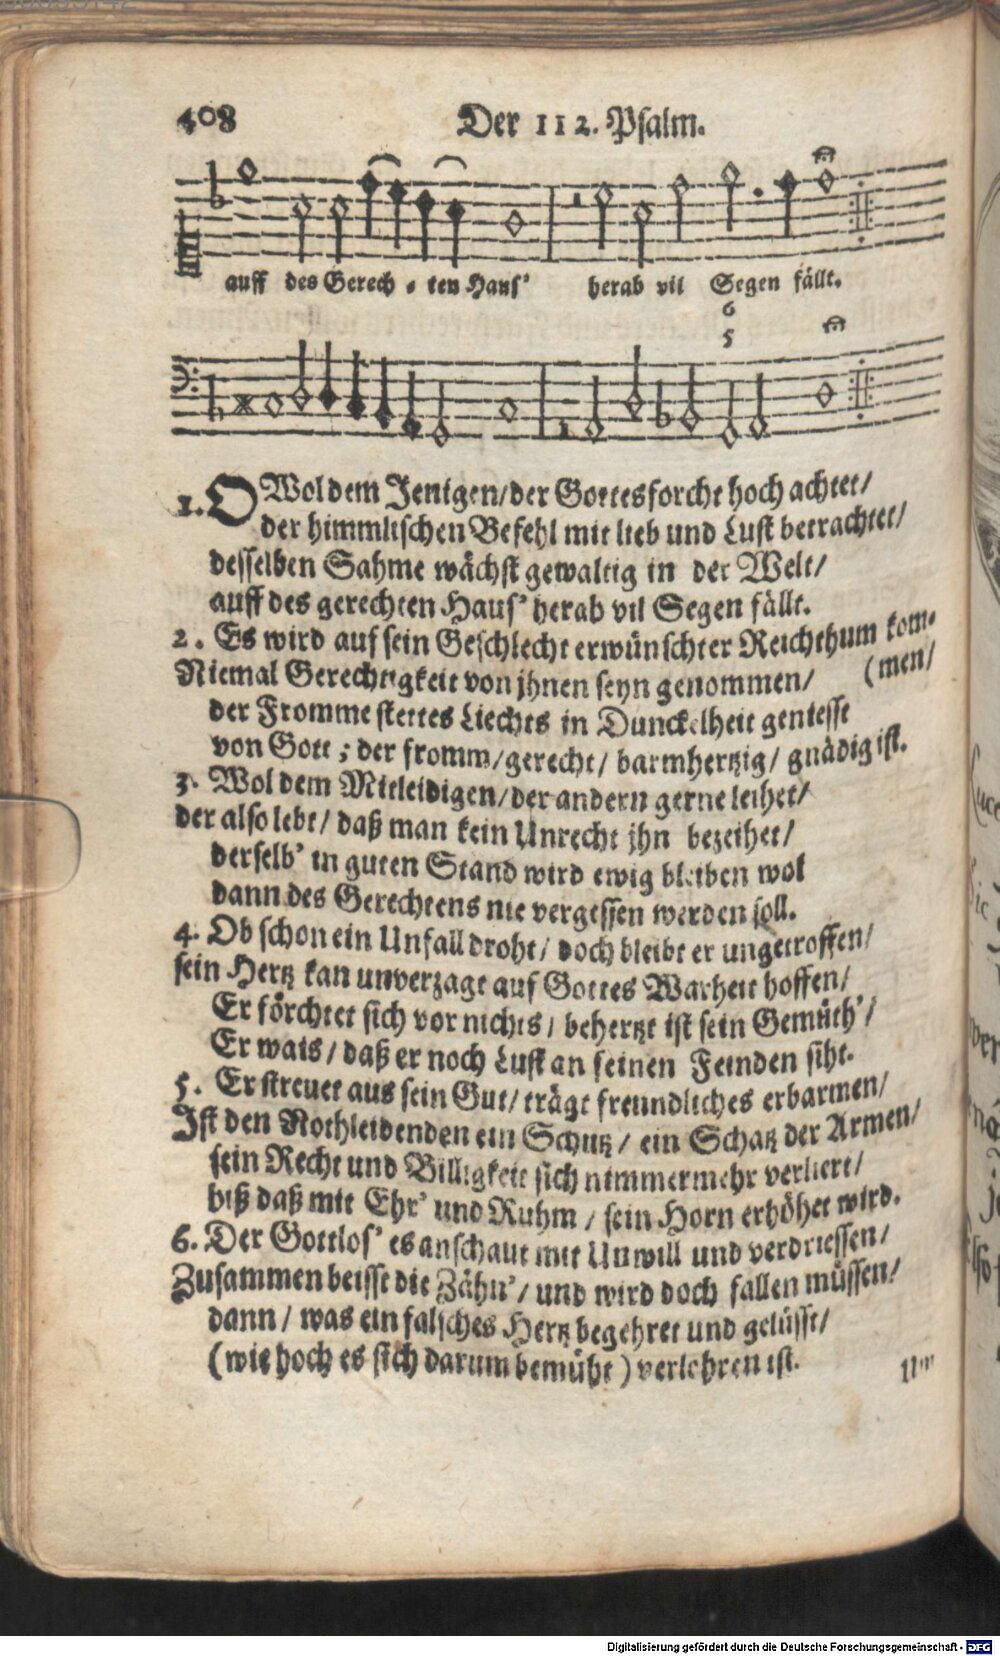 408
Der 112. Psalm.
auff des Gerech - ten Haus' herab vil Segen fällt.
6
5
1. O Wol dem Jenigen/ der Gottesforcht hoch achtet/
der himmlischen Befehl mit lieb und Lust betrachtet/
desselben Sahme wächst gewaltig in der Welt/
auff des gerechten Haus' herab vil Segen fällt.
2. Es wird auf sein Geschlecht erwünschter Reichthum kom-
(men/
Niemal Gerechtigkeit von jhnen seyn genommen/
der Fromme stettes Liechts in Dunckelheit geniesst
von Gott; der fromm/ gerecht/ barmhertzig/ gnädig ist.
3. Wol dem Mitleidigen/ der andern gerne leihet/
der also lebt/ daß man kein Unrecht jhn bezeihet/
derselb' in guten Stand wird ewig bleiben wol
dann des Gerechtens nie vergessen werden soll.
4. Ob schon ein Unfall droht/ doch bleibt er ungetroffen/
sein Hertz kan unverzagt auf Gottes Warheit hoffen/
Er förchtet sich vor nichts/ behertzt ist sein Gemüth'/
Er wais/ daß er noch Lust an seinen Feinden siht.
5. Er streuet aus sein Gut/ trägt freundliches erbarmen/
Ist den Nothleidenden ein Schutz/ ein Schatz der Armen/
sein Recht und Billigkeit sich nimmermehr verliert/
biß daß mit Ehr' und Ruhm/ sein Horn erhöhet wird.
6. Der Gottlos' es anschaut mit Unwill und verdriessen/
Zusammen beisst die Zähn'/ und wird doch fallen müssen/
dann/ was ein falsches Hertz begehret und gelüsst/
(wie hoch es sich darum bemüht) verlohren ist.
Digitalisierung gefördert durch die Deutsche Forschungsgemeinschaft - DFG